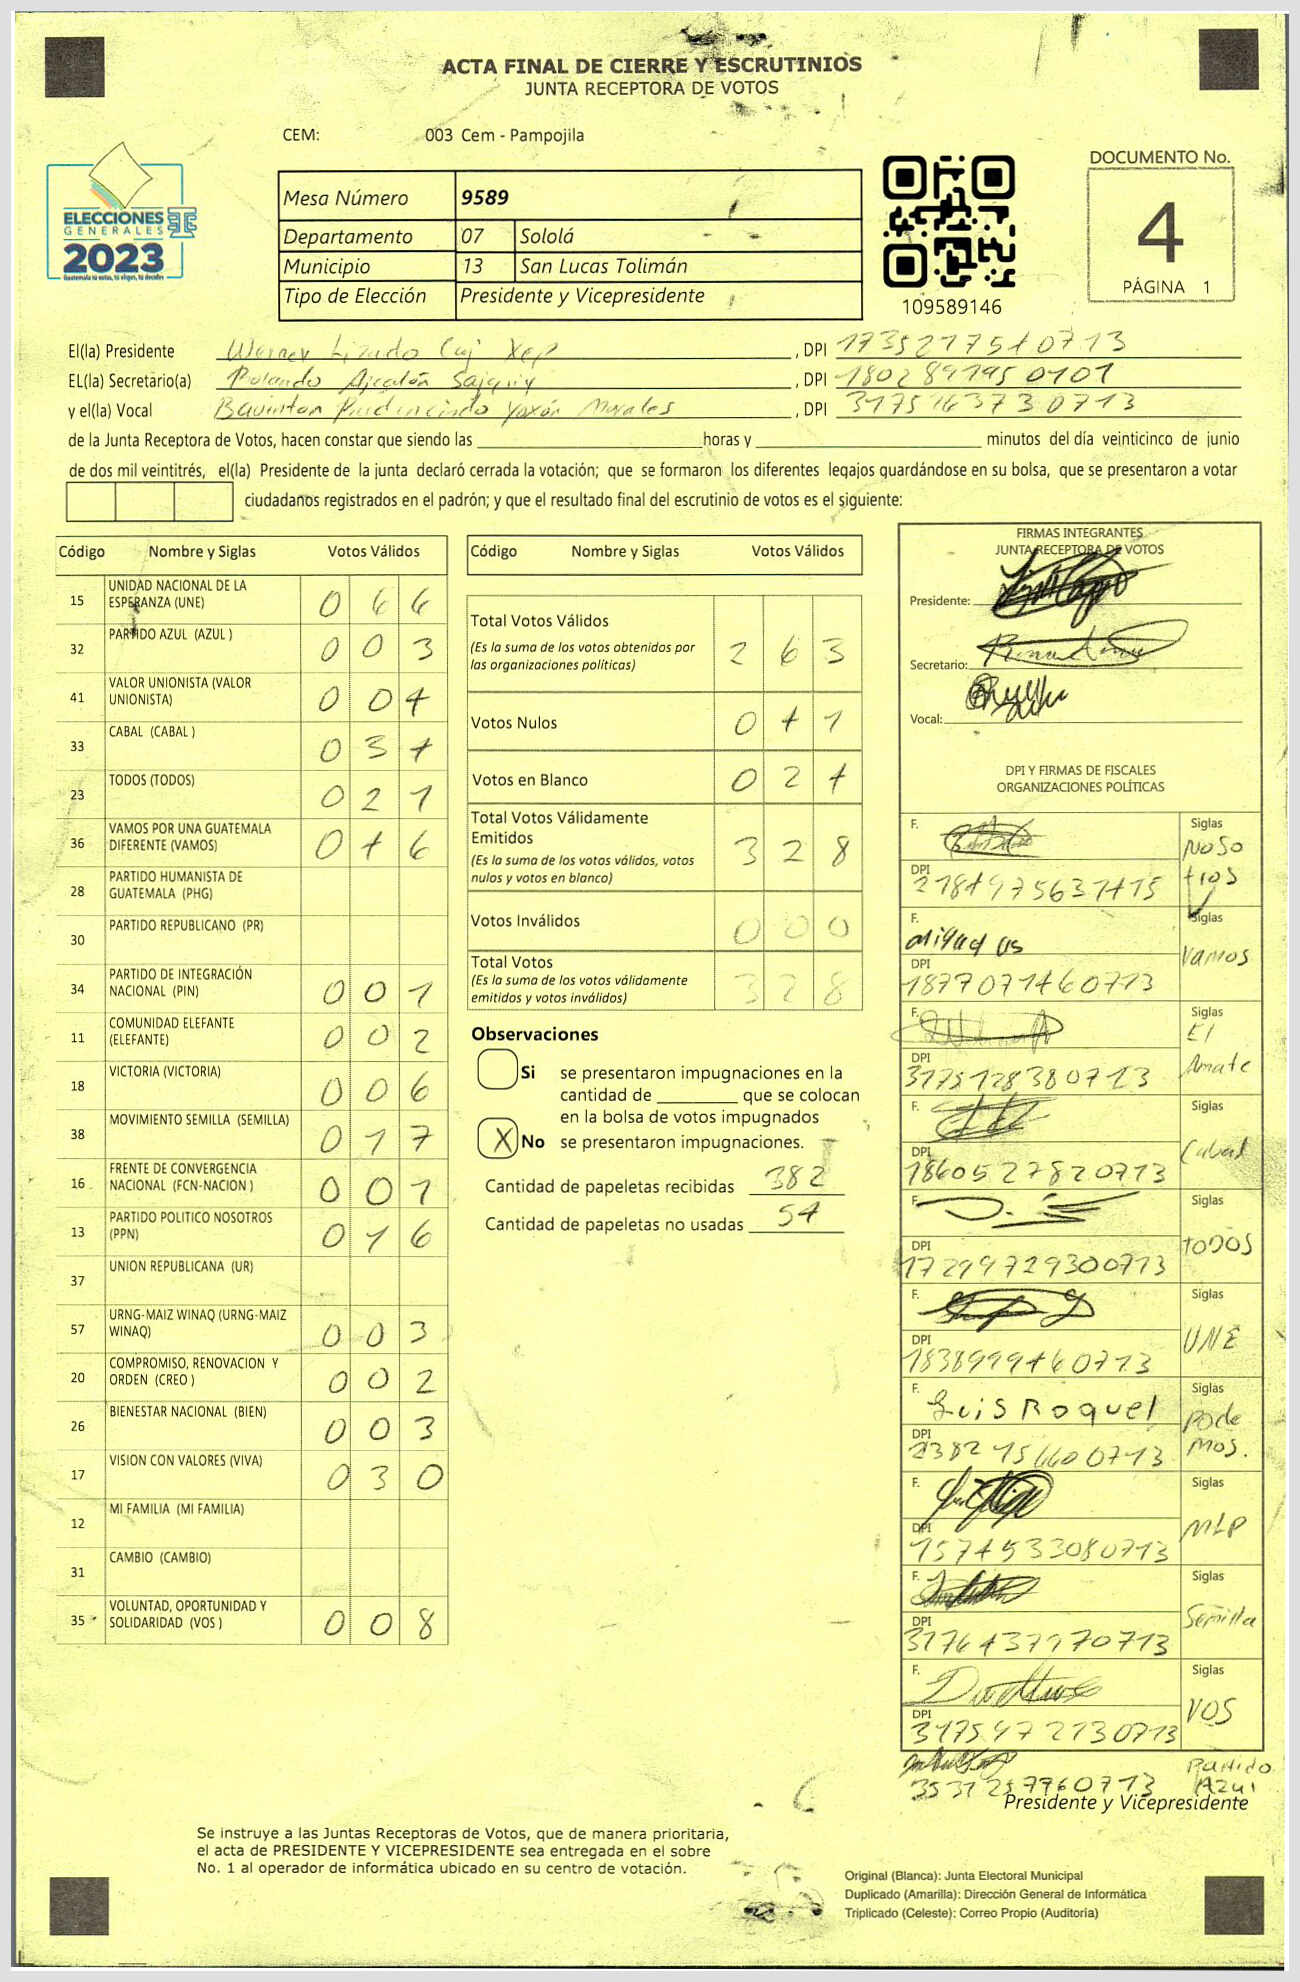 ACTA FINAL DE CIERRE Y ESCRUTINIOS
JUNTA RECEPTORA DE VOTOS
CEM: 003 Cem - Pampojila
ELECCIONES
GENERALES
2023
Guatemala tú votas, tú eliges, tú decides
Mesa Número 9589
Departamento 07 Sololá
Municipio 13 San Lucas Tolimán
Tipo de Elección Presidente y Vicepresidente
109589146
DOCUMENTO No.
4
PÁGINA 1
El(la) Presidente Werner Lizado Cuj Xep, DPI
EL(la) Secretario(a) Rolando Ajcalón, DPI 1802891950101
y el(la) Vocal Yaxón Morales, DPI 3175163730713
de la Junta Receptora de Votos, hacen constar que siendo las horas y minutos del día veinticinco de junio
de dos mil veintitrés, el(la) Presidente de la junta declaró cerrada la votación; que se formaron los diferentes legajos guardándose en su bolsa, que se presentaron a votar
ciudadanos registrados en el padrón; y que el resultado final del escrutinio de votos es el siguiente:
Código Nombre y Siglas Votos Válidos
15 UNIDAD NACIONAL DE LA ESPERANZA (UNE) 066
32 PARTIDO AZUL (AZUL ) 003
41 VALOR UNIONISTA (VALOR UNIONISTA) 004
33 CABAL (CABAL ) 034
23 TODOS (TODOS) 021
36 VAMOS POR UNA GUATEMALA DIFERENTE (VAMOS) 046
28 PARTIDO HUMANISTA DE GUATEMALA (PHG)
30 PARTIDO REPUBLICANO (PR)
34 PARTIDO DE INTEGRACIÓN NACIONAL (PIN) 001
11 COMUNIDAD ELEFANTE (ELEFANTE) 002
18 VICTORIA (VICTORIA) 006
38 MOVIMIENTO SEMILLA (SEMILLA) 017
16 FRENTE DE CONVERGENCIA NACIONAL (FCN-NACION ) 001
13 PARTIDO POLITICO NOSOTROS (PPN) 016
37 UNION REPUBLICANA (UR)
57 URNG-MAIZ WINAQ (URNG-MAIZ WINAQ) 003
20 COMPROMISO, RENOVACION Y ORDEN (CREO ) 002
26 BIENESTAR NACIONAL (BIEN) 003
17 VISION CON VALORES (VIVA) 030
12 MI FAMILIA (MI FAMILIA)
31 CAMBIO (CAMBIO)
35 VOLUNTAD, OPORTUNIDAD Y SOLIDARIDAD (VOS ) 008
Código Nombre y Siglas Votos Válidos
Total Votos Válidos 263
(Es la suma de los votos obtenidos por
las organizaciones políticas)
Votos Nulos 041
Votos en Blanco 024
Total Votos Válidamente
Emitidos 328
(Es la suma de los votos válidos, votos
nulos y votos en blanco)
Votos Inválidos 000
Total Votos 328
(Es la suma de los votos válidamente
emitidos y votos inválidos)
Observaciones
Si se presentaron impugnaciones en la
cantidad de que se colocan
en la bolsa de votos impugnados
X No se presentaron impugnaciones.
Cantidad de papeletas recibidas 382
Cantidad de papeletas no usadas 54
FIRMAS INTEGRANTES
JUNTA RECEPTORA DE VOTOS
Presidente:
Secretario:
Vocal:
DPI Y FIRMAS DE FISCALES
ORGANIZACIONES POLÍTICAS
F. Siglas Nosotros
DPI 2184975631415
F. Siglas Vamos
DPI 1877071460713
F. Siglas El Amate
DPI 3175128380713
F. Siglas Cabal
DPI 1860527820713
F. Siglas TODOS
DPI 1729972930713
F. Siglas UNE
DPI 1838999460713
F. Luis Roquel Siglas Podemos.
DPI 2382156600713
F. Siglas MLP
DPI 1574533080713
F. Siglas Semilla
DPI 3176437270713
F. Siglas VOS
DPI 3175472130713
Partido Azul
Presidente y Vicepresidente
Se instruye a las Juntas Receptoras de Votos, que de manera prioritaria,
el acta de PRESIDENTE Y VICEPRESIDENTE sea entregada en el sobre
No. 1 al operador de informática ubicado en su centro de votación.
Original (Blanca): Junta Electoral Municipal
Duplicado (Amarilla): Dirección General de Informática
Triplicado (Celeste): Correo Propio (Auditoria)